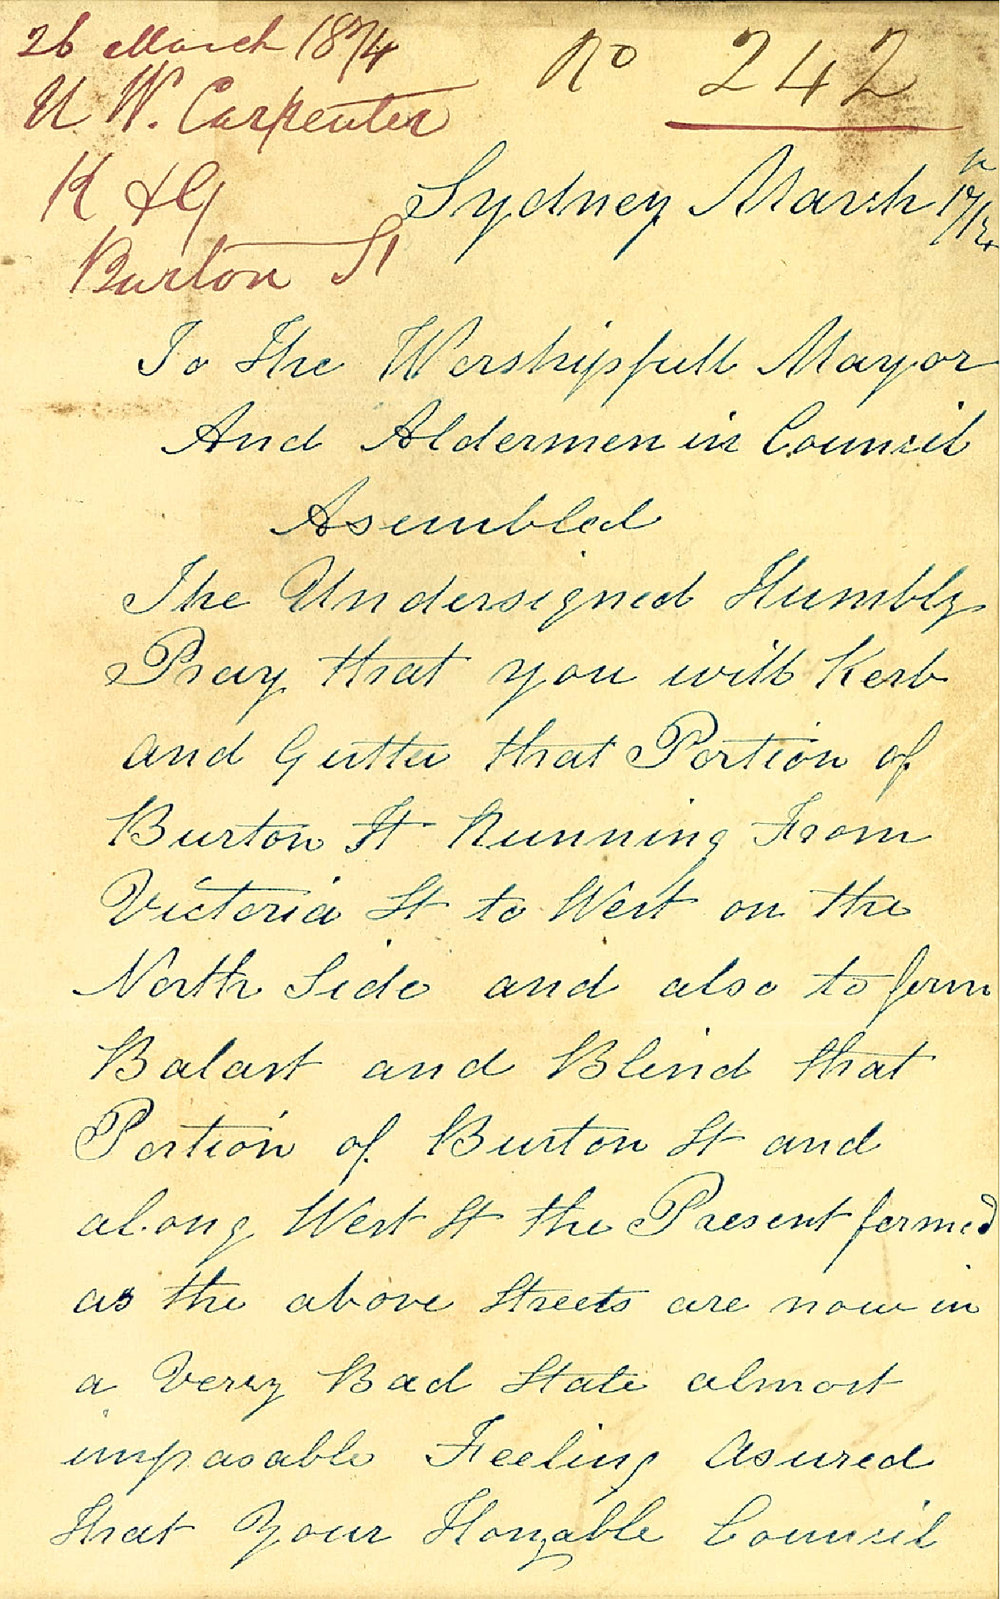 26 March 1874
No 242
U. W. Carpenter
K & G
Burton St
Sydney March 17/74
To the Worshipfull Mayor
And Aldermen in Council
Asembled
The Undersigned Humbly
Pray that you will Kerb
and Gutter that Portion of
Burton St Running From
Victoria St to West on the
North Side and also to form
Balast and Blind that
Portion of Burton St and
along West St the Present formed
as the above Streets are now in
a Very Bad State almost
impasable Feeling Asured
that Your Honable Council